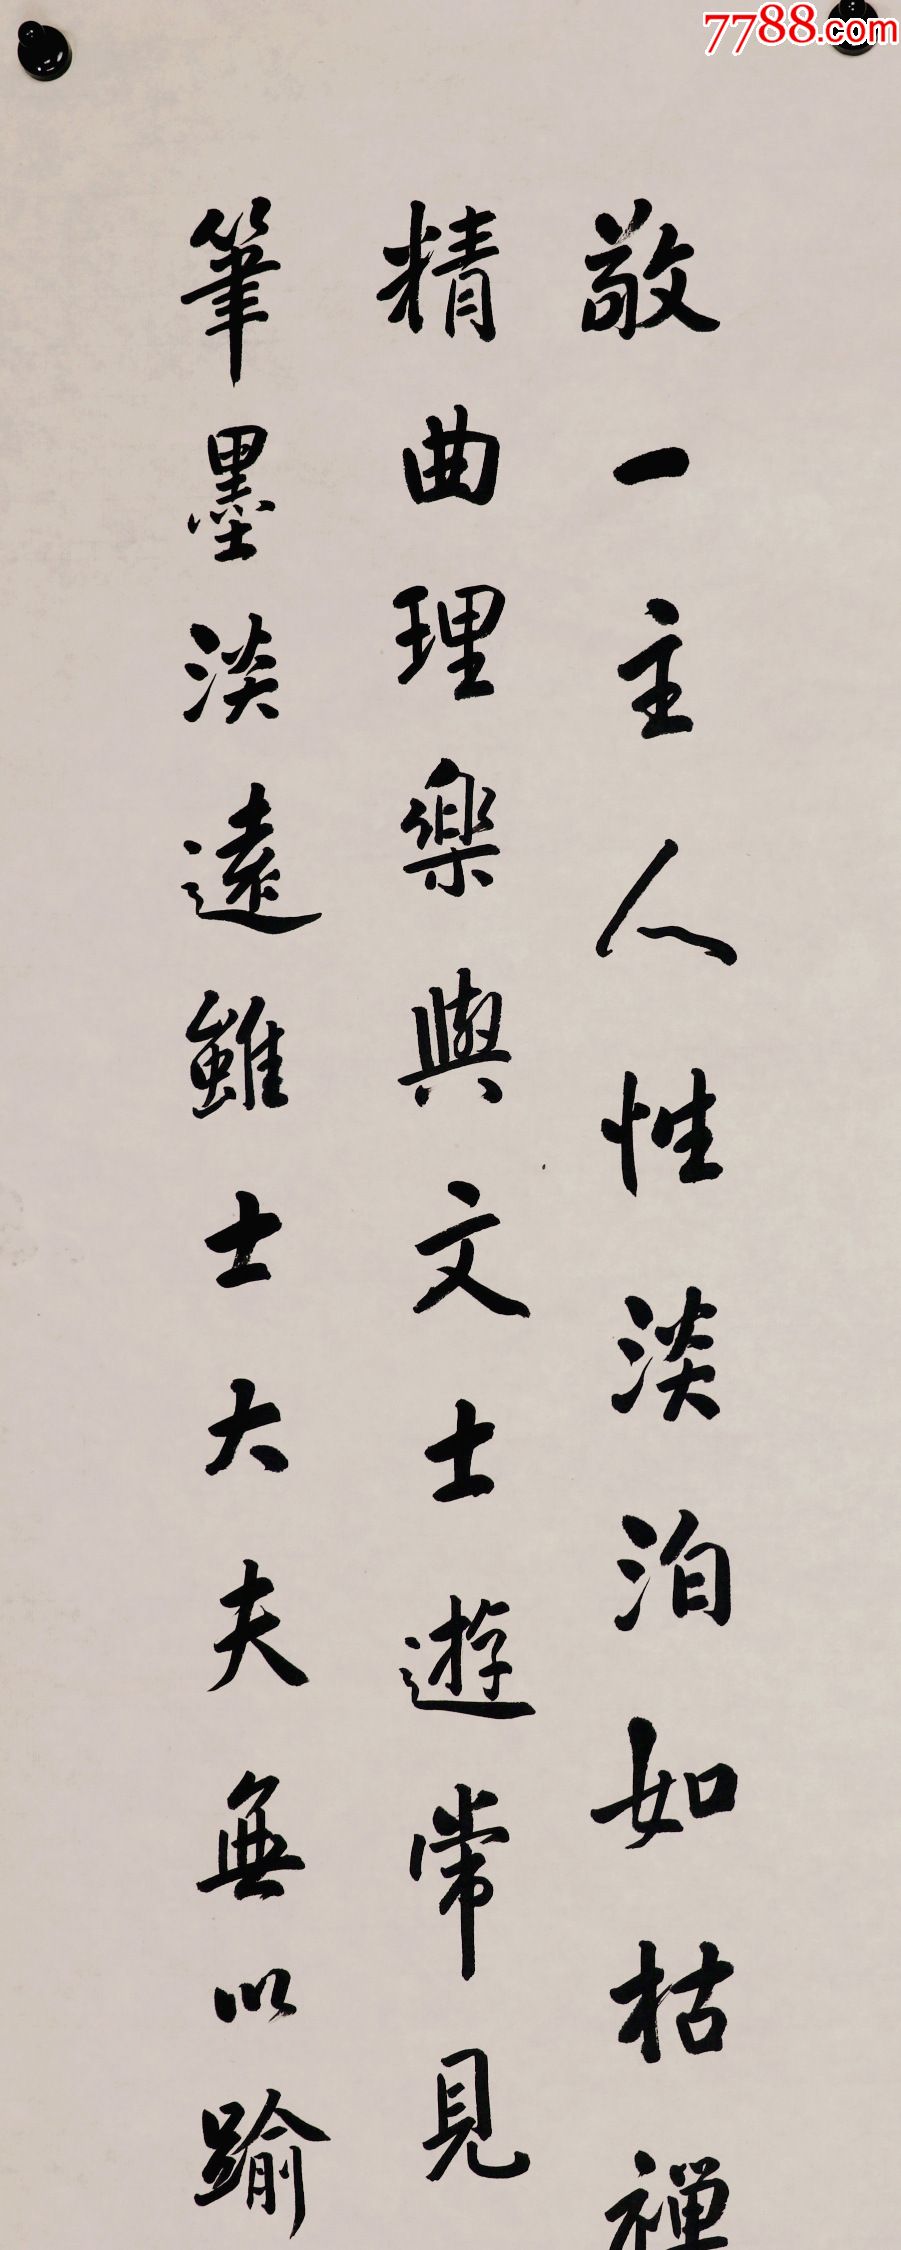 7788.com
敬一主人性淡泊如枯禅
精曲理樂與文士遊常見
筆墨淡遠雖士大夫無以踰